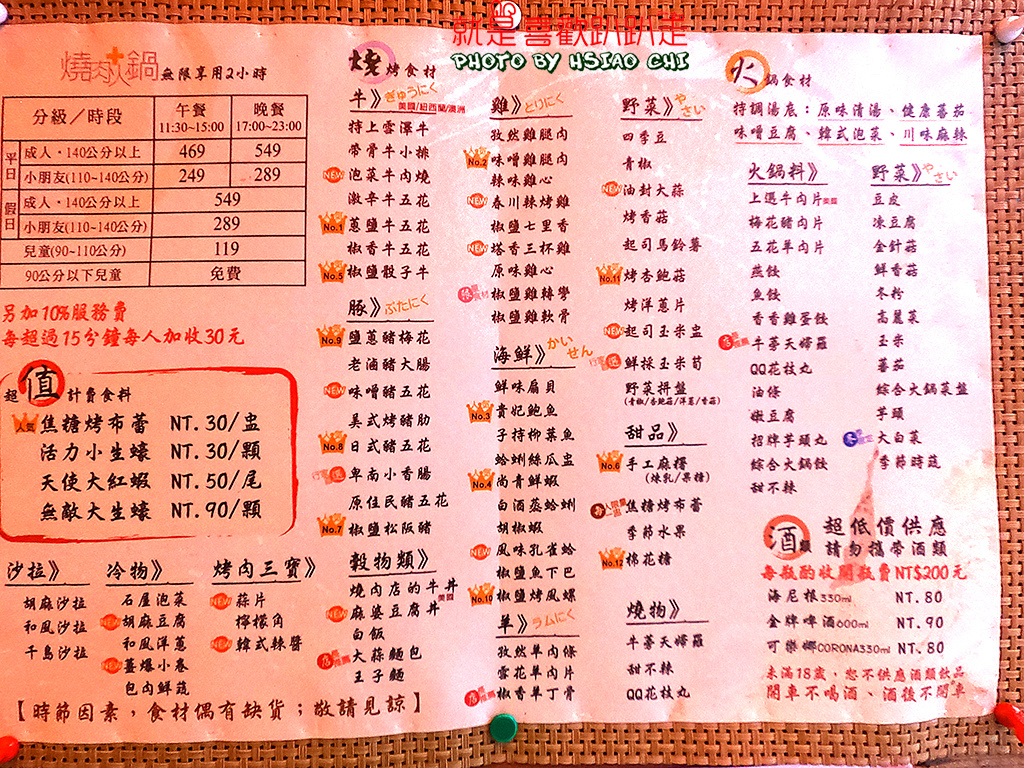 就是喜歡趴趴走
PHOTO BY HSIAO CHI
燒肉火鍋 無限享用2小時
分級／時段 午餐 11:30~15:00 晚餐 17:00~23:00
平日 成人・140公分以上 469 549
小朋友(110~140公分) 249 289
假日 成人・140公分以上 549
小朋友(110~140公分) 289
兒童(90~110公分) 119
90公分以下兒童 免費
另加10%服務費
每超過15分鐘每人加收30元
超值計費食料
人氣 焦糖烤布蕾 NT.30/盅
活力小生蠔 NT.30/顆
天使大紅蝦 NT.50/尾
無敵大生蠔 NT.90/顆
沙拉》
胡麻沙拉
和風沙拉
千島沙拉
冷物》
石屋泡菜
NEW 胡麻豆腐
和風洋蔥
NEW 薑爆小卷
包肉鮮蔬
烤肉三寶》
NEW 蒜片
檸檬角
NEW 韓式辣醬
【時節因素，食材偶有缺貨；敬請見諒】
燒烤食材
牛》ぎゅうにく
美國/紐西蘭/澳洲
特上雪澤牛
帶骨牛小排
NEW 泡菜牛肉燒
激辛牛五花
No.1 蔥鹽牛五花
椒香牛五花
No.5 椒鹽骰子牛
豚》ぶたにく
No.9 鹽蔥豬梅花
老滷豬大腸
NEW 味噌豬五花
美式烤豬肋
No.8 日式豬五花
卑南小香腸
原住民豬五花
No.7 椒鹽松阪豬
穀物類》
燒肉店的牛丼 美國
NEW 麻婆豆腐丼
白飯
大蒜麵包
王子麵
雞》とりにく
孜然雞腿肉
No.2 味噌雞腿肉
辣味雞心
NEW 春川辣烤雞
椒鹽七里香
NEW 塔香三杯雞
原味雞心
椒鹽雞轉彎
椒鹽雞軟骨
海鮮》かいせん
鮮味扇貝
No.3 貴妃鮑魚
子持柳葉魚
蛤蜊絲瓜盅
No.4 尚青鮮蝦
白酒蒸蛤蜊
胡椒蝦
NEW 風味孔雀蛤
椒鹽魚下巴
No.10 椒鹽烤鳳螺
羊》ラムにく
孜然羊肉條
雪花羊肉片
椒香羊丁骨
野菜》やさい
四季豆
青椒
NEW 油封大蒜
烤香菇
起司馬鈴薯
No.11 烤杏鮑菇
烤洋蔥片
NEW 起司玉米盅
鮮採玉米筍
野菜拼盤
(青椒/杏鮑菇/洋蔥/香菇)
甜品》
No.6 手工麻糬
(煉乳/黑糖)
焦糖烤布蕾
季節水果
No.12 棉花糖
燒物》
牛蒡天婦羅
甜不辣
QQ花枝丸
火鍋食材
特調湯底：原味清湯、健康蕃茄
味噌豆腐、韓式泡菜、川味麻辣
火鍋料》
上選牛肉片 美國
梅花豬肉片
五花羊肉片
燕餃
魚餃
香香雞蛋餃
牛蒡天婦羅
QQ花枝丸
油條
嫩豆腐
招牌芋頭丸
綜合火鍋餃
甜不辣
野菜》やさい
豆皮
凍豆腐
金針菇
鮮香菇
冬粉
高麗菜
玉米
蕃茄
綜合火鍋菜盤
芋頭
大白菜
季節時蔬
酒類 超低價供應
請勿攜帶酒類
每瓶酌收開瓶費NT$200元
海尼根330ml NT.80
金牌啤酒600ml NT.90
可樂娜CORONA330ml NT.80
未滿18歲，恕不供應酒類飲品
開車不喝酒、酒後不開車